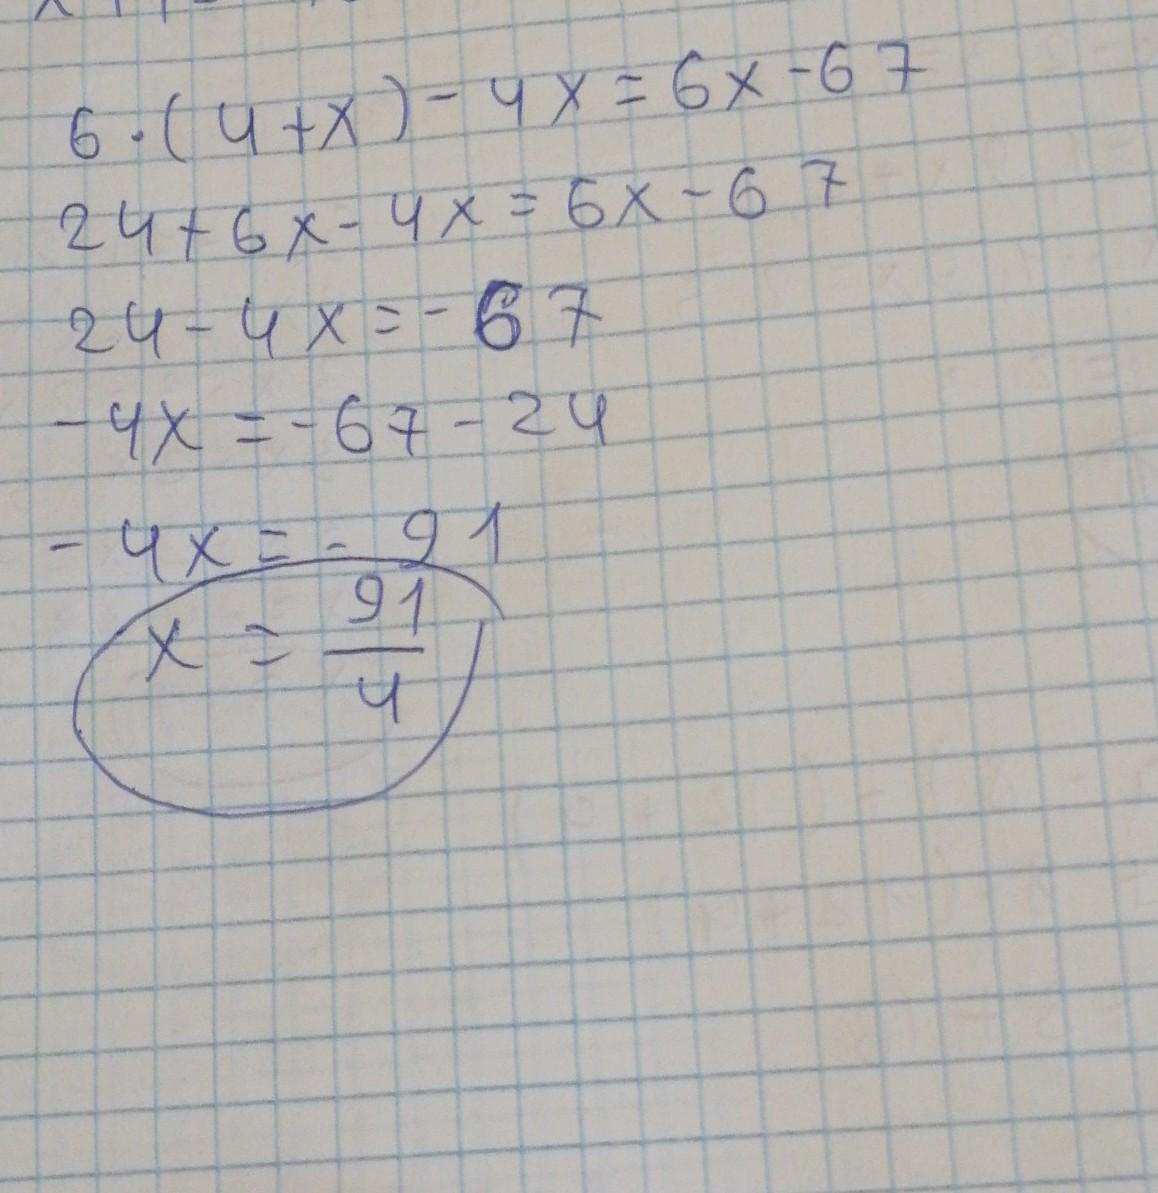 6·(4+x)-4x=6x-67
24+6x-4x=6x-67
24-4x=-67
-4x=-67-24
-4x=-91
x=91/4